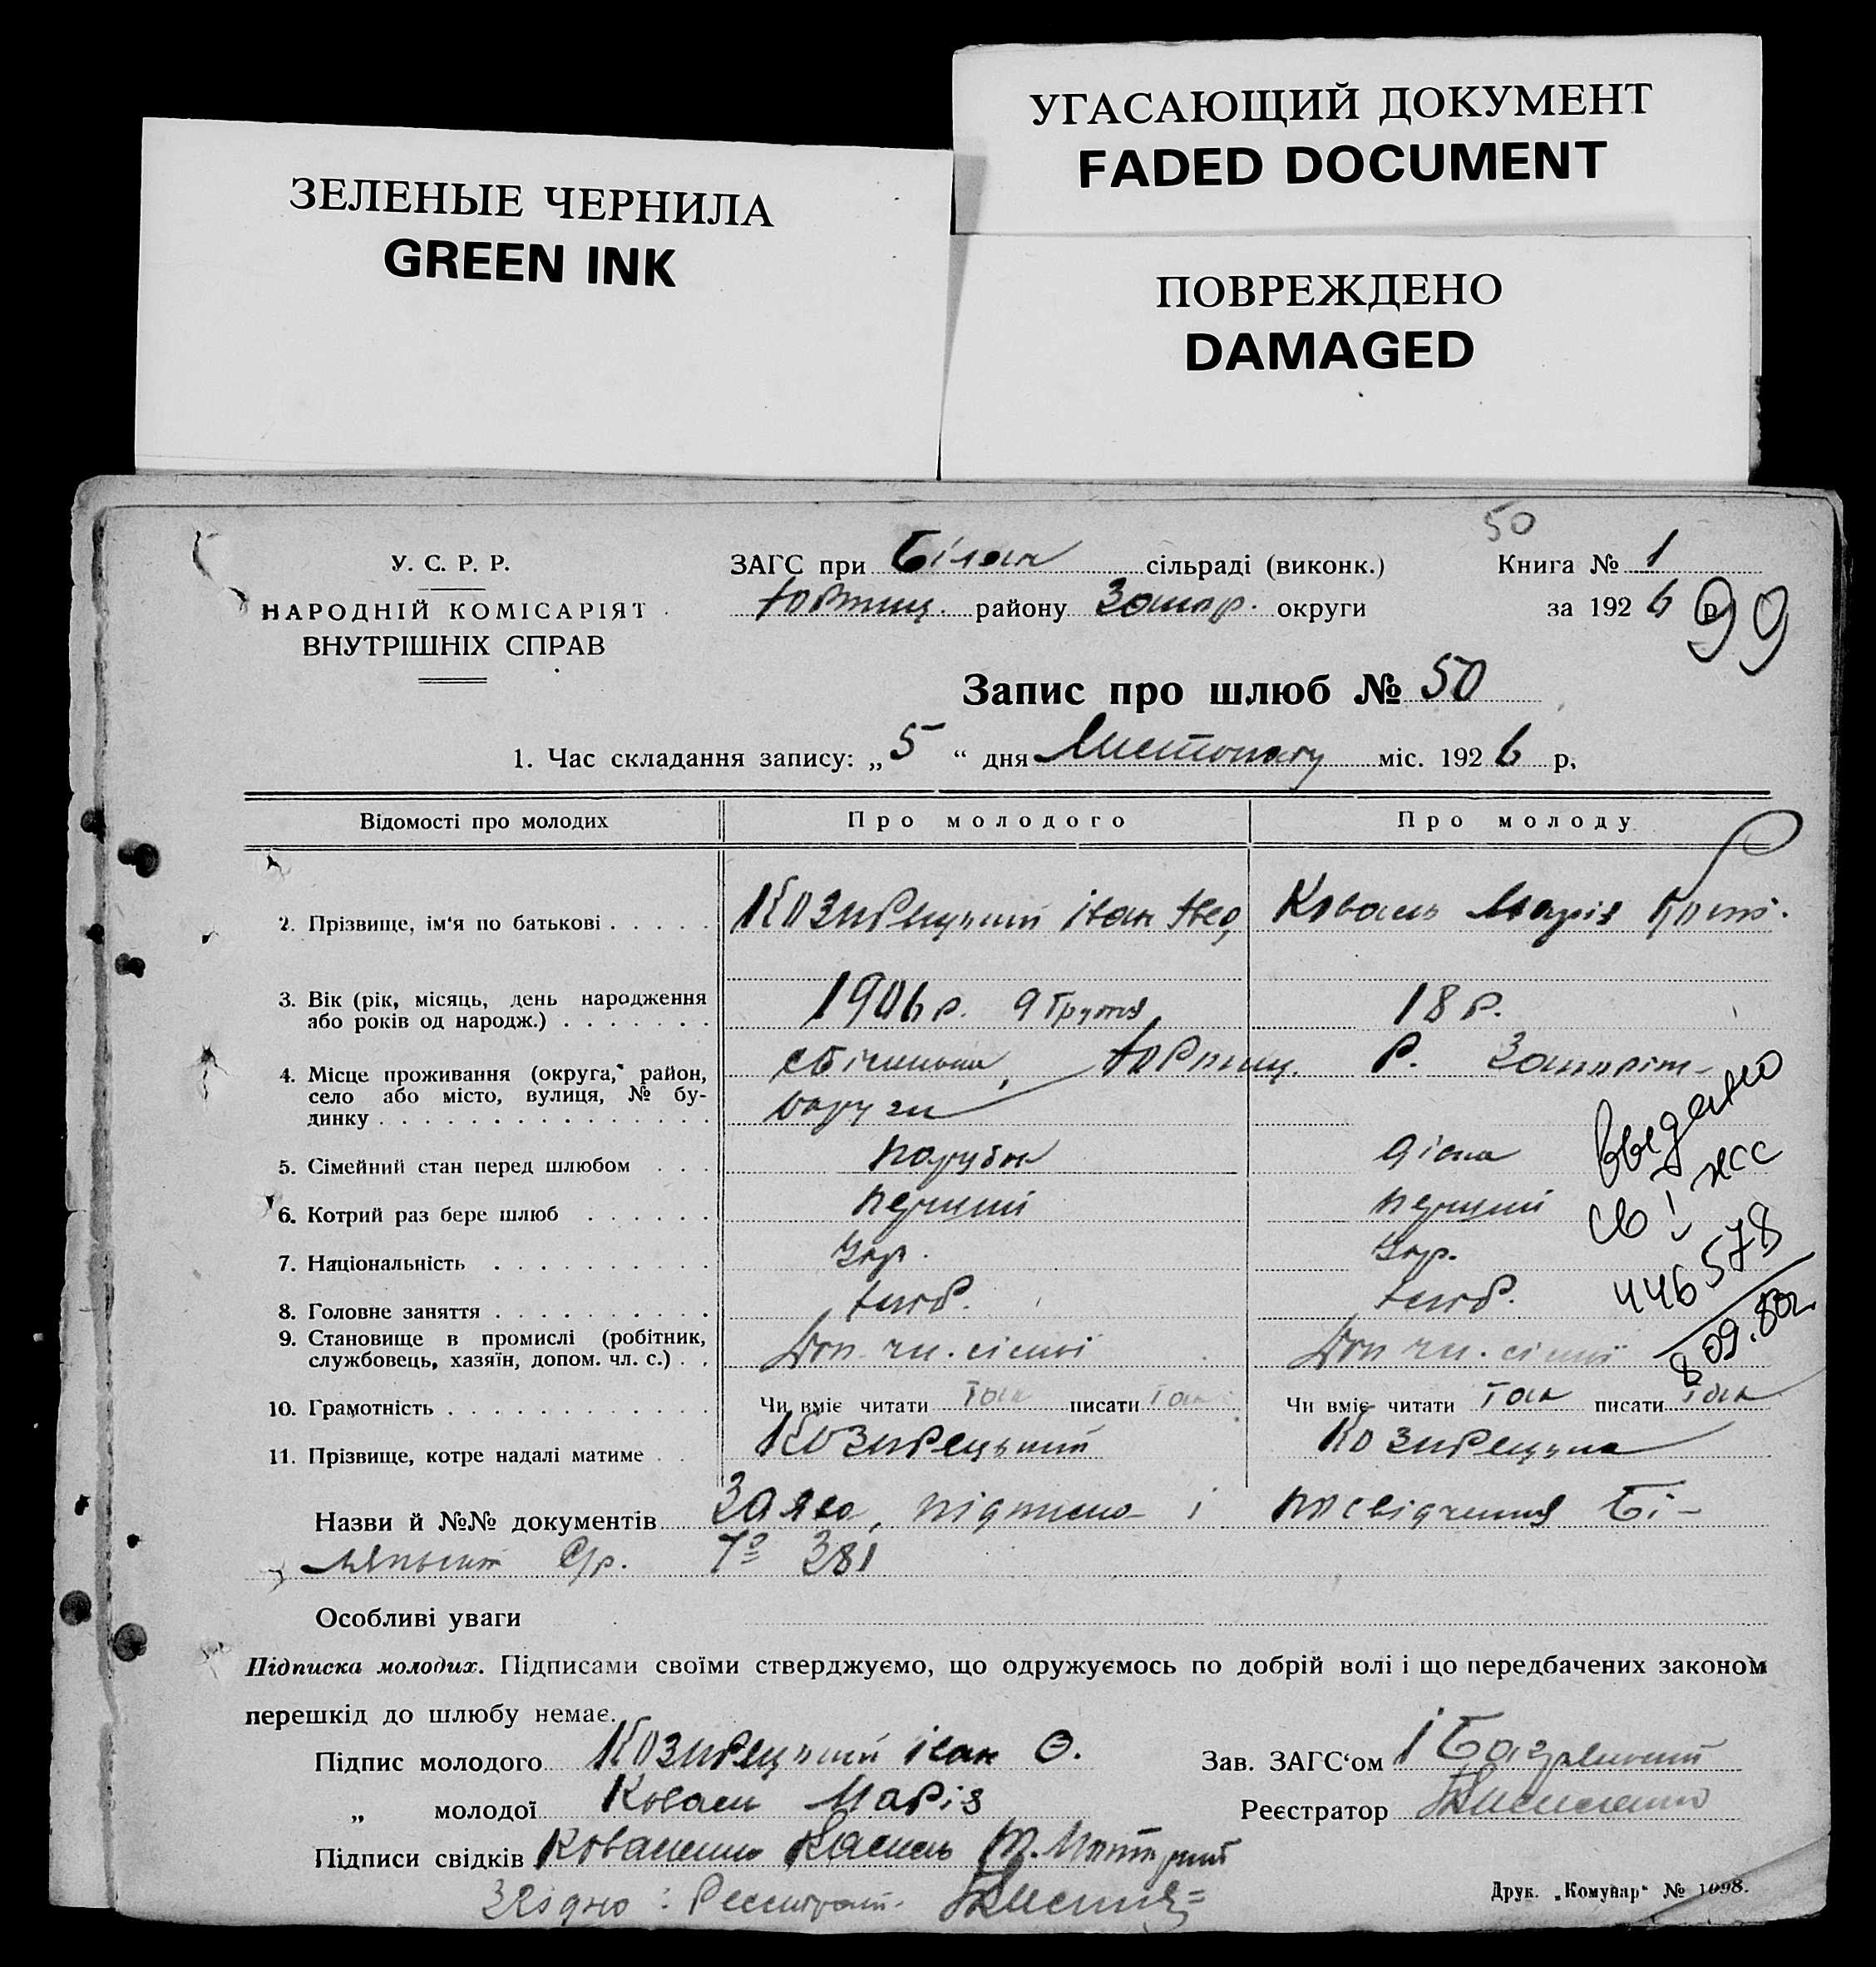 УГАСАЮЩИЙ ДОКУМЕНТ
FADED DOCUMENT
ЗЕЛЕНЫЕ ЧЕРНИЛА
GREEN INK
ПОВРЕЖДЕНО
DAMAGED
50
У. С. Р. Р.
НАРОДНІЙ КОМІСАРІЯТ
ВНУТРІШНІХ СПРАВ
ЗАГС при сільраді (виконк.)
Книга № 1
району округи
за 1926 р.
99
Запис про шлюб № 50
1. Час складання запису: „5“ дня Листопаду міс. 1926 р.
Відомості про молодих
Про молодого
Про молоду
2. Прізвище, ім'я по батькові
Козирецький Іван
Коваль Марія
3. Вік (рік, місяць, день народження
або років од народж.)
1906 р. 9 Грудня
18 р.
4. Місце проживання (округа, район,
село або місто, вулиця, № бу-
динку
округи
5. Сімейний стан перед шлюбом
парубок
дівка
6. Котрий раз бере шлюб
перший
перший
7. Національність
Укр.
Укр.
8. Головне заняття
9. Становище в промислі (робітник,
службовець, хазяїн, допом. чл. с.)
Доп. чл. сімї
Доп чл. сімї
10. Грамотність
Чи вміє читати Так писати Так
Чи вміє читати Так писати Так
11. Прізвище, котре надалі матиме
Козирецький
Козирецька
Выдано
446578
8 09.80г.
Назви й №№ документів Заява, підписка і посвідчення Бі-
С/р. № 381
Особливі уваги
Підписка молодих. Підписами своїми стверджуємо, що одружуємось по добрій волі і що передбачених законом
перешкід до шлюбу немає.
Підпис молодого Козирецький Іван Ф.
Зав. ЗАГС'ом
„ молодої Коваль Марія
Реєстратор
Підписи свідків Коваленко Василь
Згідно:
Друк. „Комунар“ № 1098.